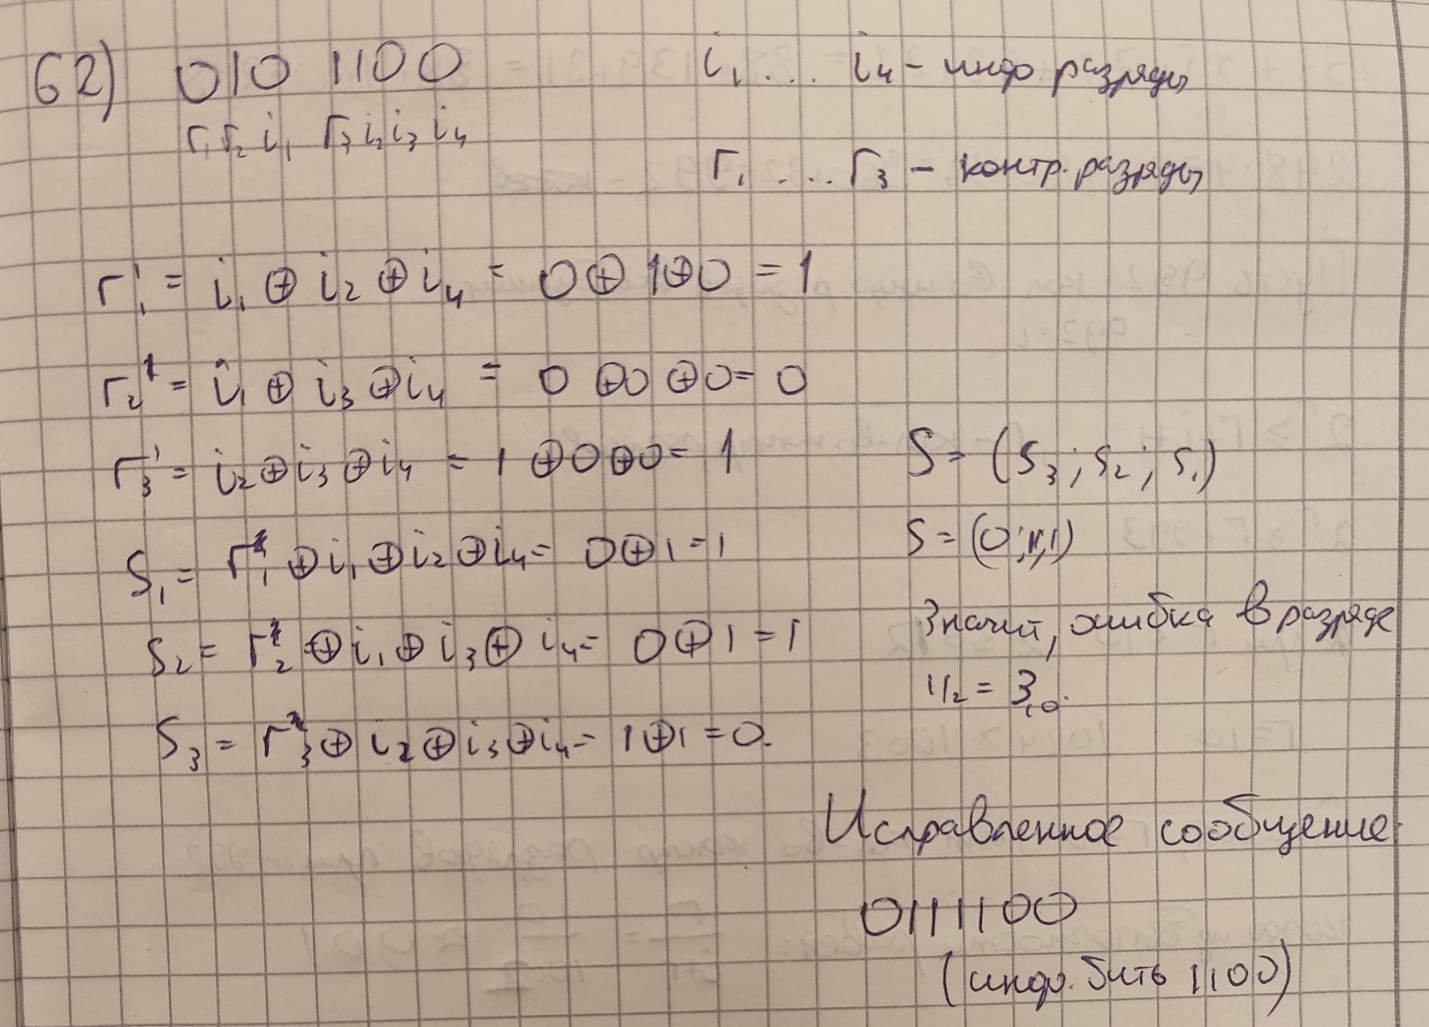 62) 010 1100
r₁ r₂ i₁ r₃ i₂ i₃ i₄
i₁ ... i₄ - инф разряды
r₁ ... r₃ - контр. разряды
r₁' = i₁ ⊕ i₂ ⊕ i₄ = 0 ⊕ 1 ⊕ 0 = 1
r₂' = i₁ ⊕ i₃ ⊕ i₄ = 0 ⊕ 0 ⊕ 0 = 0
r₃' = i₂ ⊕ i₃ ⊕ i₄ = 1 ⊕ 0 ⊕ 0 = 1
S₁ = r₁ ⊕ i₁ ⊕ i₂ ⊕ i₄ = 0 ⊕ 1 = 1
S₂ = r₂ ⊕ i₁ ⊕ i₃ ⊕ i₄ = 0 ⊕ 1 = 1
S₃ = r₃ ⊕ i₂ ⊕ i₃ ⊕ i₄ = 1 ⊕ 1 = 0.
S = (S₃; S₂; S₁)
S = (0; 1; 1)
Значит, ошибка в разряде
11₂ = 3₁₀.
Исправленное сообщение
0111100
(инф. биты 1100)